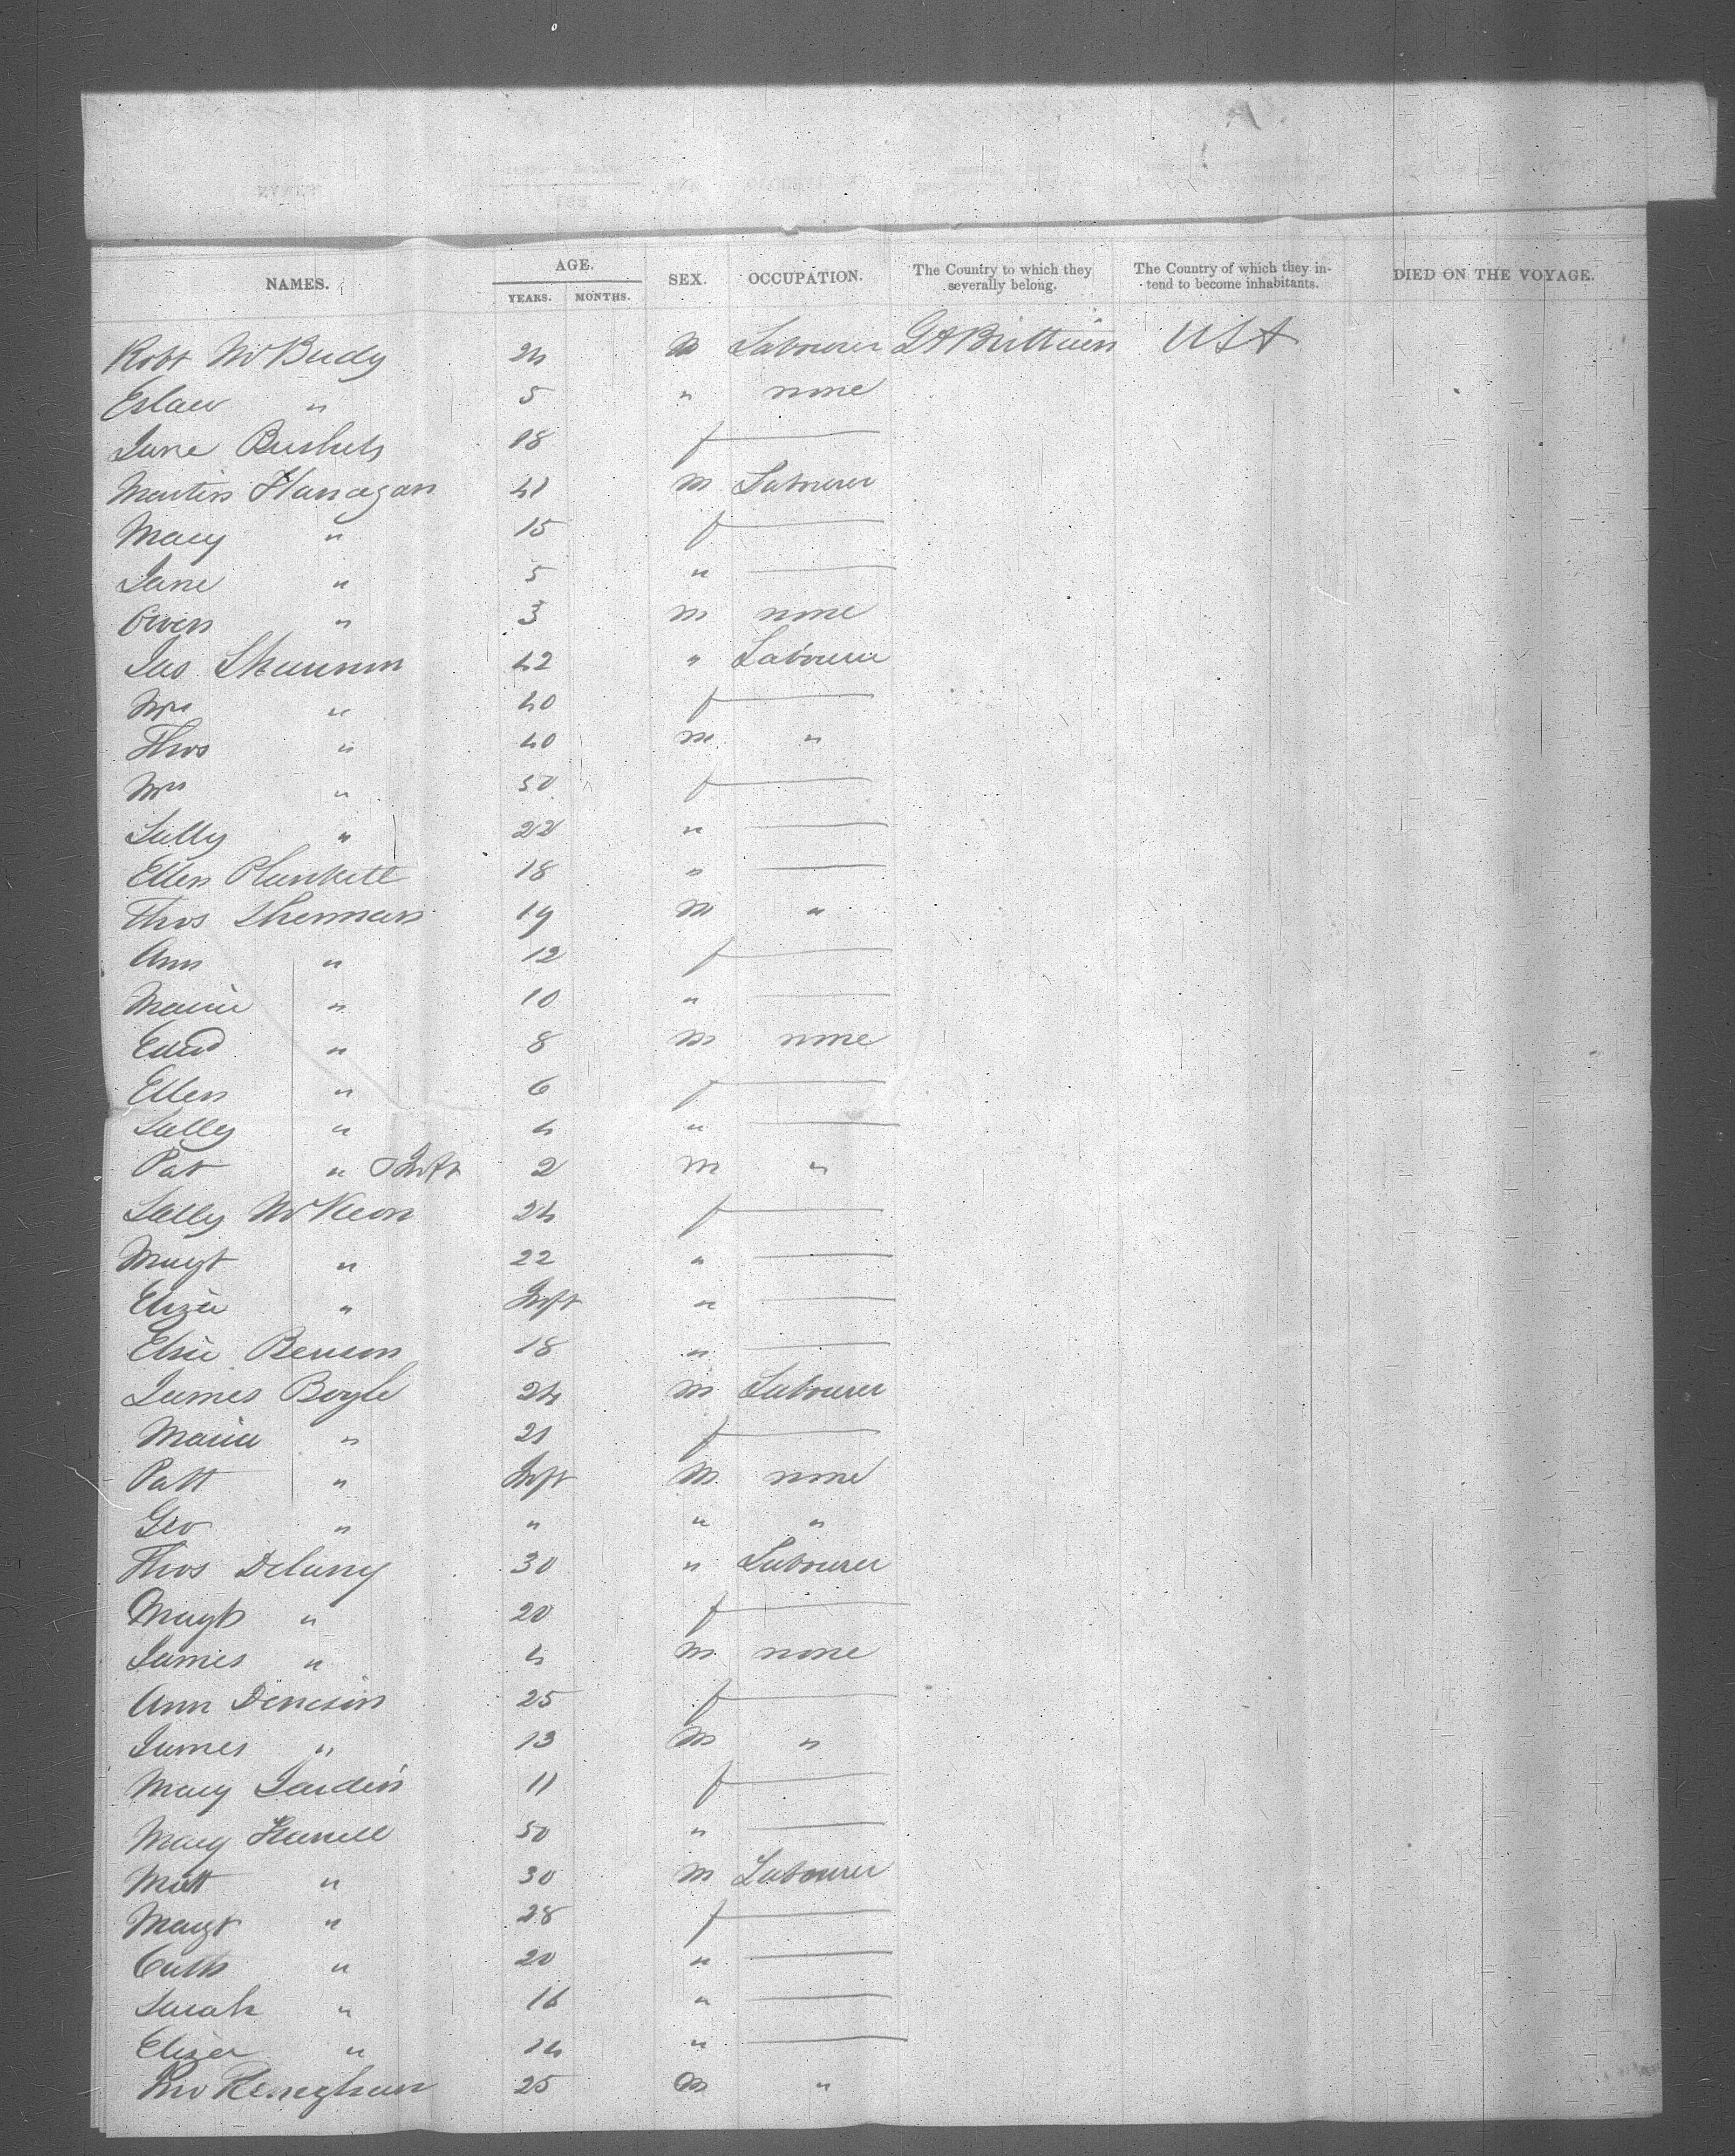 NAMES. AGE. SEX. OCCUPATION. The Country to which they severally belong. The Country of which they intend to become inhabitants. DIED ON THE VOYAGE.
YEARS. MONTHS.
Robt McBudy 24 M Labourer Gt Brittain USA
5 " none
Jane 18 f —
Martin Flanagan 41 M Labourer
Mary " 15 f —
Jane " 5 " —
Owen " 3 M none
Jas Shannon 42 " Labourer
Mrs " 40 f —
Thos " 40 M "
Mrs " 50 f —
Sally " 22 " —
Ellen Plunkett 18 " —
Thos Sherman 19 M "
Ann " 12 f —
Maria " 10 " —
Edwd " 8 M none
Ellen " 6 f —
Sally " 4 " —
Pat " & Inft 2 M "
Sally McKeon 24 f —
Magt " 22 " —
Eliza " Inft " —
Elsie Benson 18 " —
James Boyle 24 M Labourer
Maria " 21 f —
Patt " Inft M none
Geo " " " "
Thos Delany 30 " Labourer
Magt " 20 f —
James " 4 M none
Ann Denison 25 f —
James " 13 M "
Mary 11 f —
Mary 50 " —
Matt " 30 M Labourer
Magt " 28 f —
Cath " 20 " —
Sarah " 16 " —
Eliza " 14 " —
Jno Reneghan 25 M "